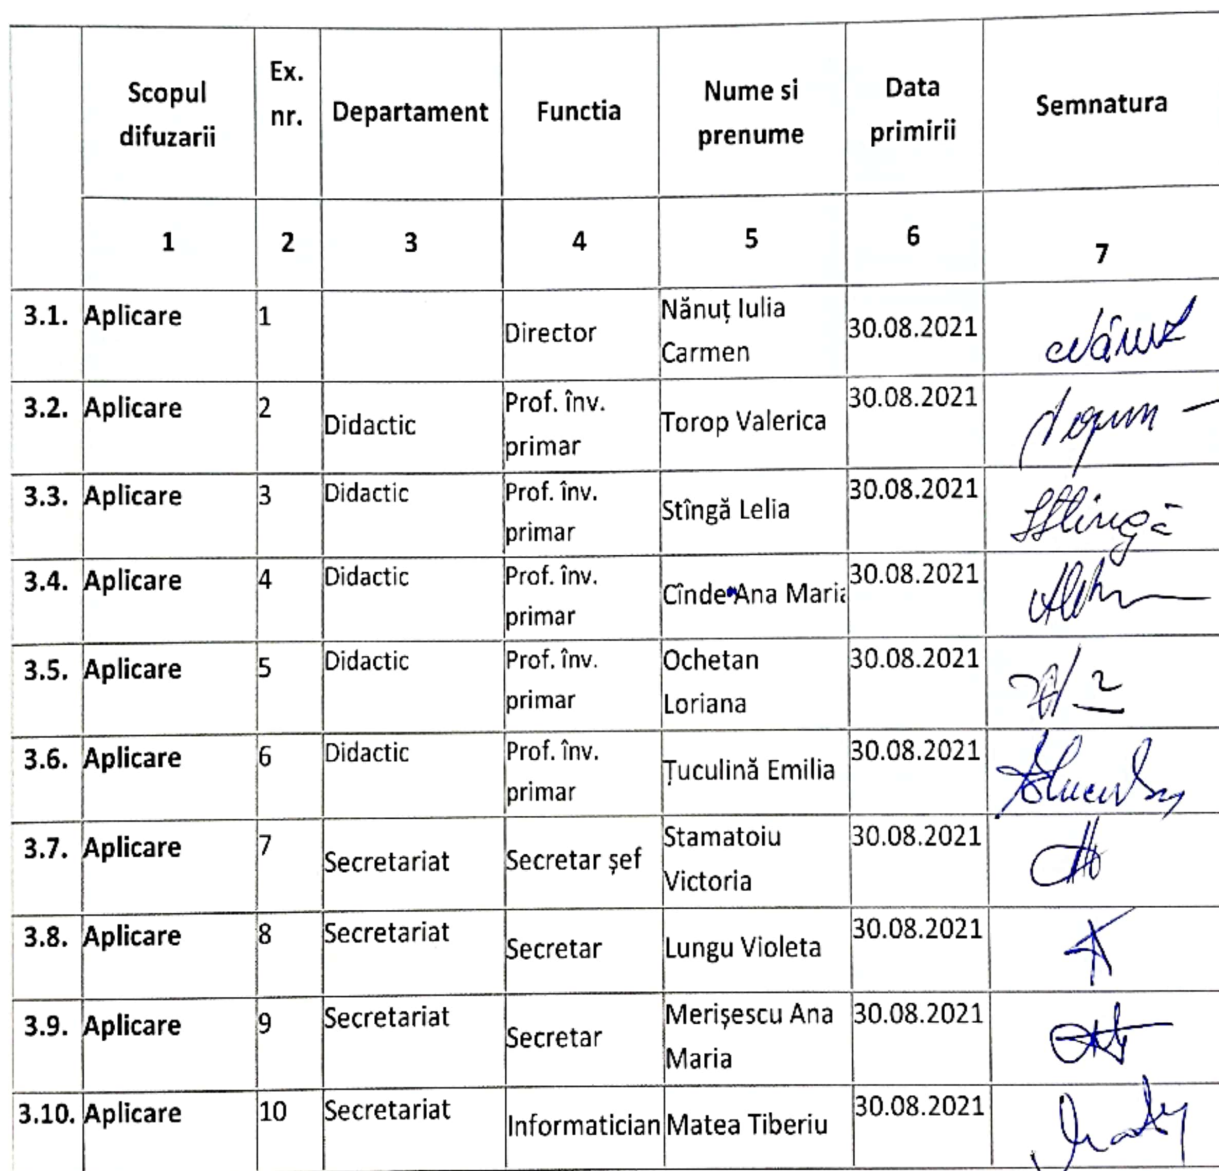 Scopul difuzarii Ex. nr. Departament Functia Nume si prenume Data primirii Semnatura
1 2 3 4 5 6 7
3.1. Aplicare 1 Director Nănuț Iulia Carmen 30.08.2021
3.2. Aplicare 2 Didactic Prof. înv. primar Torop Valerica 30.08.2021
3.3. Aplicare 3 Didactic Prof. înv. primar Stîngă Lelia 30.08.2021
3.4. Aplicare 4 Didactic Prof. înv. primar Cînde Ana Maria 30.08.2021
3.5. Aplicare 5 Didactic Prof. înv. primar Ochetan Loriana 30.08.2021
3.6. Aplicare 6 Didactic Prof. înv. primar Țuculină Emilia 30.08.2021
3.7. Aplicare 7 Secretariat Secretar șef Stamatoiu Victoria 30.08.2021
3.8. Aplicare 8 Secretariat Secretar Lungu Violeta 30.08.2021
3.9. Aplicare 9 Secretariat Secretar Merișescu Ana Maria 30.08.2021
3.10. Aplicare 10 Secretariat Informatician Matea Tiberiu 30.08.2021